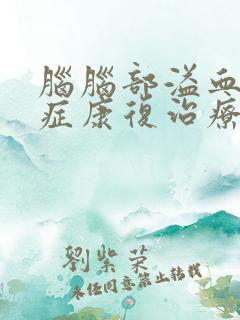 腦腦部溢血
症康復治療
劉紫菜
未经同意禁止转载